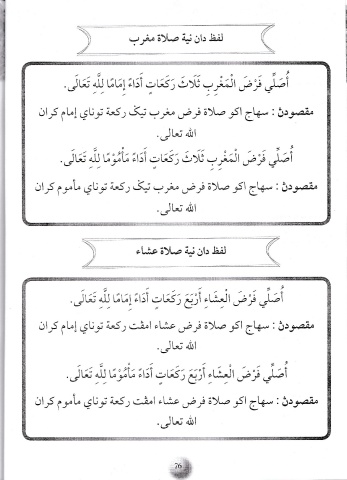 لفظ دان نية صلاة مغرب
أُصَلِّي فَرْضَ الْمَغْرِبِ ثَلَاثَ رَكَعَاتٍ أَدَاءً إِمَامًا لِلَّهِ تَعَالَى.
مقصودڽ : سهاج اكو صلاة فرض مغرب تيݢ ركعة توناي إمام كران
الله تعالى.
أُصَلِّي فَرْضَ الْمَغْرِبِ ثَلَاثَ رَكَعَاتٍ أَدَاءً مَأْمُوْمًا لِلَّهِ تَعَالَى.
مقصودڽ : سهاج اكو صلاة فرض مغرب تيݢ ركعة توناي مأموم كران
الله تعالى.
لفظ دان نية صلاة عشاء
أُصَلِّي فَرْضَ الْعِشَاءِ أَرْبَعَ رَكَعَاتٍ أَدَاءً إِمَامًا لِلَّهِ تَعَالَى.
مقصودڽ : سهاج اكو صلاة فرض عشاء امڤت ركعة توناي إمام كران
الله تعالى.
أُصَلِّي فَرْضَ الْعِشَاءِ أَرْبَعَ رَكَعَاتٍ أَدَاءً مَأْمُوْمًا لِلَّهِ تَعَالَى.
مقصودڽ : سهاج اكو صلاة فرض عشاء امڤت ركعة توناي مأموم كران
الله تعالى.
76